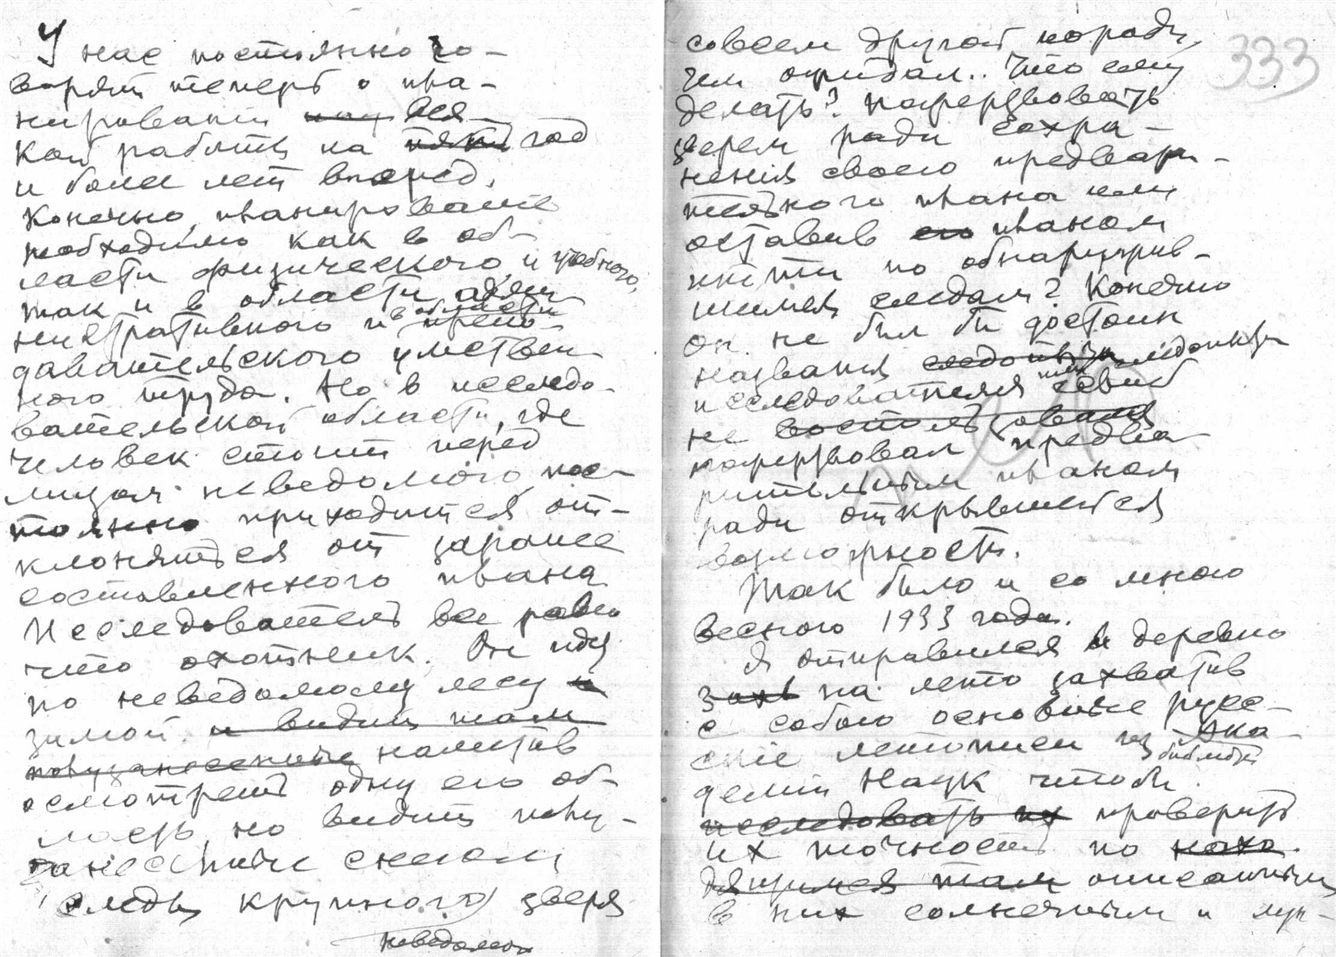 У нас постоянно го-
ворят теперь о пла-
нировании вся-
кой работы на год
и более лет вперед.
Конечно планирование
необходимо как в об-
ласти физического и учебного,
так и в области адми
нистративного и в области препо-
давательского умствен-
ного труда. Но в исследо-
вательской области, где
человек стоит перед
лицом неведомого пос-
тоянно приходится от-
клоняться от заранее
составленного плана
Исследователь все равно
что охотник. Он идя
по неведомому лесу и
зимой и видит там
полузанесенные наметив
осмотреть одну его об-
ласть но видит полу-
занесенные снегом
следы крупного зверя
неведомого
333
совсем другой породы,
чем ожидал.. Что ему
делать? Пожертвовать
зверем ради сохра-
нения своего предвари-
тельного плана или
оставив его планом
итти по обнаружив-
шимся следам? Конечно
он не был бы достоин
названия
исследователя если б
не воспользовался
пожертвовал предва-
рительным планом
ради открывшейся
возможности.
Так было и со мною
весною 1933 года.
Я отправился в деревню
на лето захватив
с собою основные русс-
кие летописи из библиот. Ака-
демии Наук чтобы
исследовать их проверить
их точность по нахо-
дящимся там описанным
в них солнечным и лун-